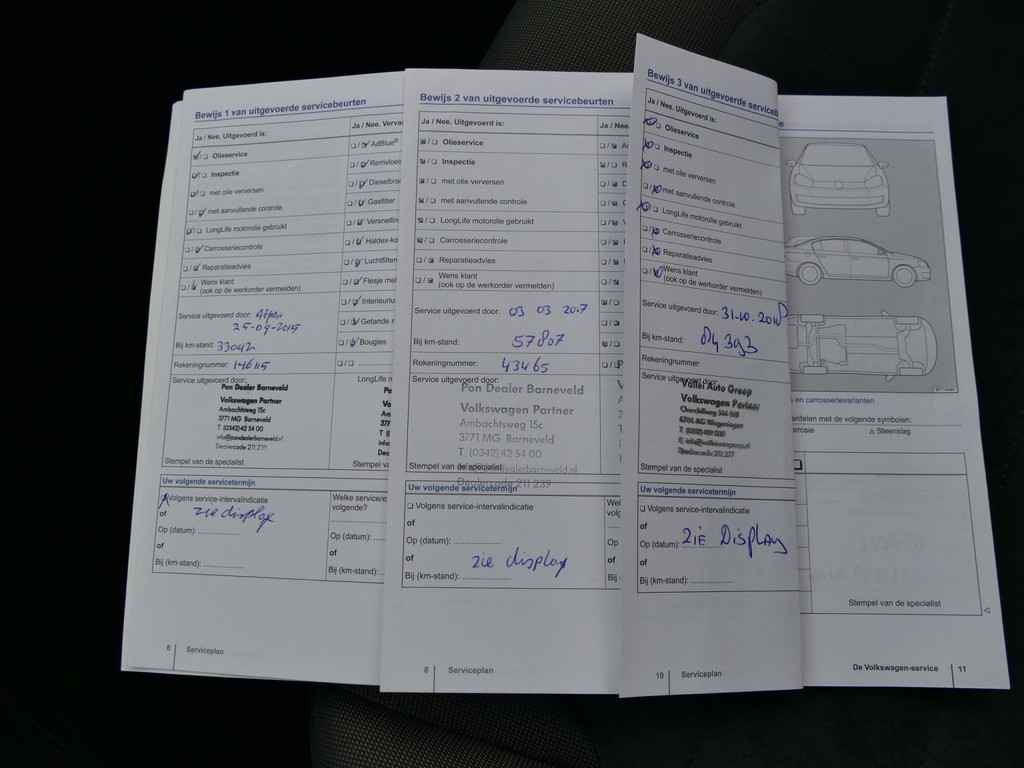 Bewijs 1 van uitgevoerde servicebeurten
Ja / Nee. Uitgevoerd is:
Ja / Nee. Verva
Olieservice
AdBlue®
Inspectie
Remvloe
met olie verversen
Dieselbra
met aanvullende controle
Gasfilter
LongLife motorolie gebruikt
Versnellin
Carrosseriecontrole
Haldex-ko
Reparatieadvies
Luchtfilter
Wens klant
(ook op de werkorder vermelden)
Flesje met
Interieurfi
Getande r
Bougies
Service uitgevoerd door:
Bij km-stand: 33042
Rekeningnummer:
Service uitgevoerd door:
LongLife m
Pon Dealer Barneveld
Volkswagen Partner
Ambachtsweg 15c
3771 MG Barneveld
T (0342) 42 54 00
info@pondealerbarneveld.nl
Dealercode 211 239
Stempel van de specialist
Stempel va
Uw volgende servicetermijn
Volgens service-intervalindicatie
Welke service/o
volgende?
of zie display
Op (datum):
Op (datum):
of
of
Bij (km-stand):
Bij (km-stand):
6 Serviceplan
Bewijs 2 van uitgevoerde servicebeurten
Ja / Nee. Uitgevoerd is:
Ja / Nee.
Olieservice
Inspectie
met olie verversen
met aanvullende controle
LongLife motorolie gebruikt
Carrosseriecontrole
Reparatieadvies
Wens klant
(ook op de werkorder vermelden)
Service uitgevoerd door: 03 03 2017
Bij km-stand: 57807
Rekeningnummer: 43465
Service uitgevoerd door:
Pon Dealer Barneveld
Volkswagen Partner
Ambachtsweg 15c
3771 MG Barneveld
T. (0342) 42 54 00
Stempel van de specialist
Dealercode 211 239
Uw volgende servicetermijn
Volgens service-intervalindicatie
of
Op (datum):
of zie display
Bij (km-stand):
8 Serviceplan
Bewijs 3 van uitgevoerde serviceb
Ja / Nee. Uitgevoerd is:
Olieservice
Inspectie
met olie verversen
met aanvullende controle
LongLife motorolie gebruikt
Carrosseriecontrole
Reparatieadvies
Wens klant
(ook op de werkorder vermelden)
Service uitgevoerd door: 31-10-2018
Bij km-stand: 84393
Rekeningnummer:
Service uitgevoerd door:
Vallei Auto Groep
Volkswagen Partner
Stempel van de specialist
Uw volgende servicetermijn
Volgens service-intervalindicatie
of
Op (datum): ZIE Display
of
Bij (km-stand):
10 Serviceplan
en carrosserievarianten
rdelen met de volgende symbolen:
Steenslag
Stempel van de specialist
De Volkswagen-service 11